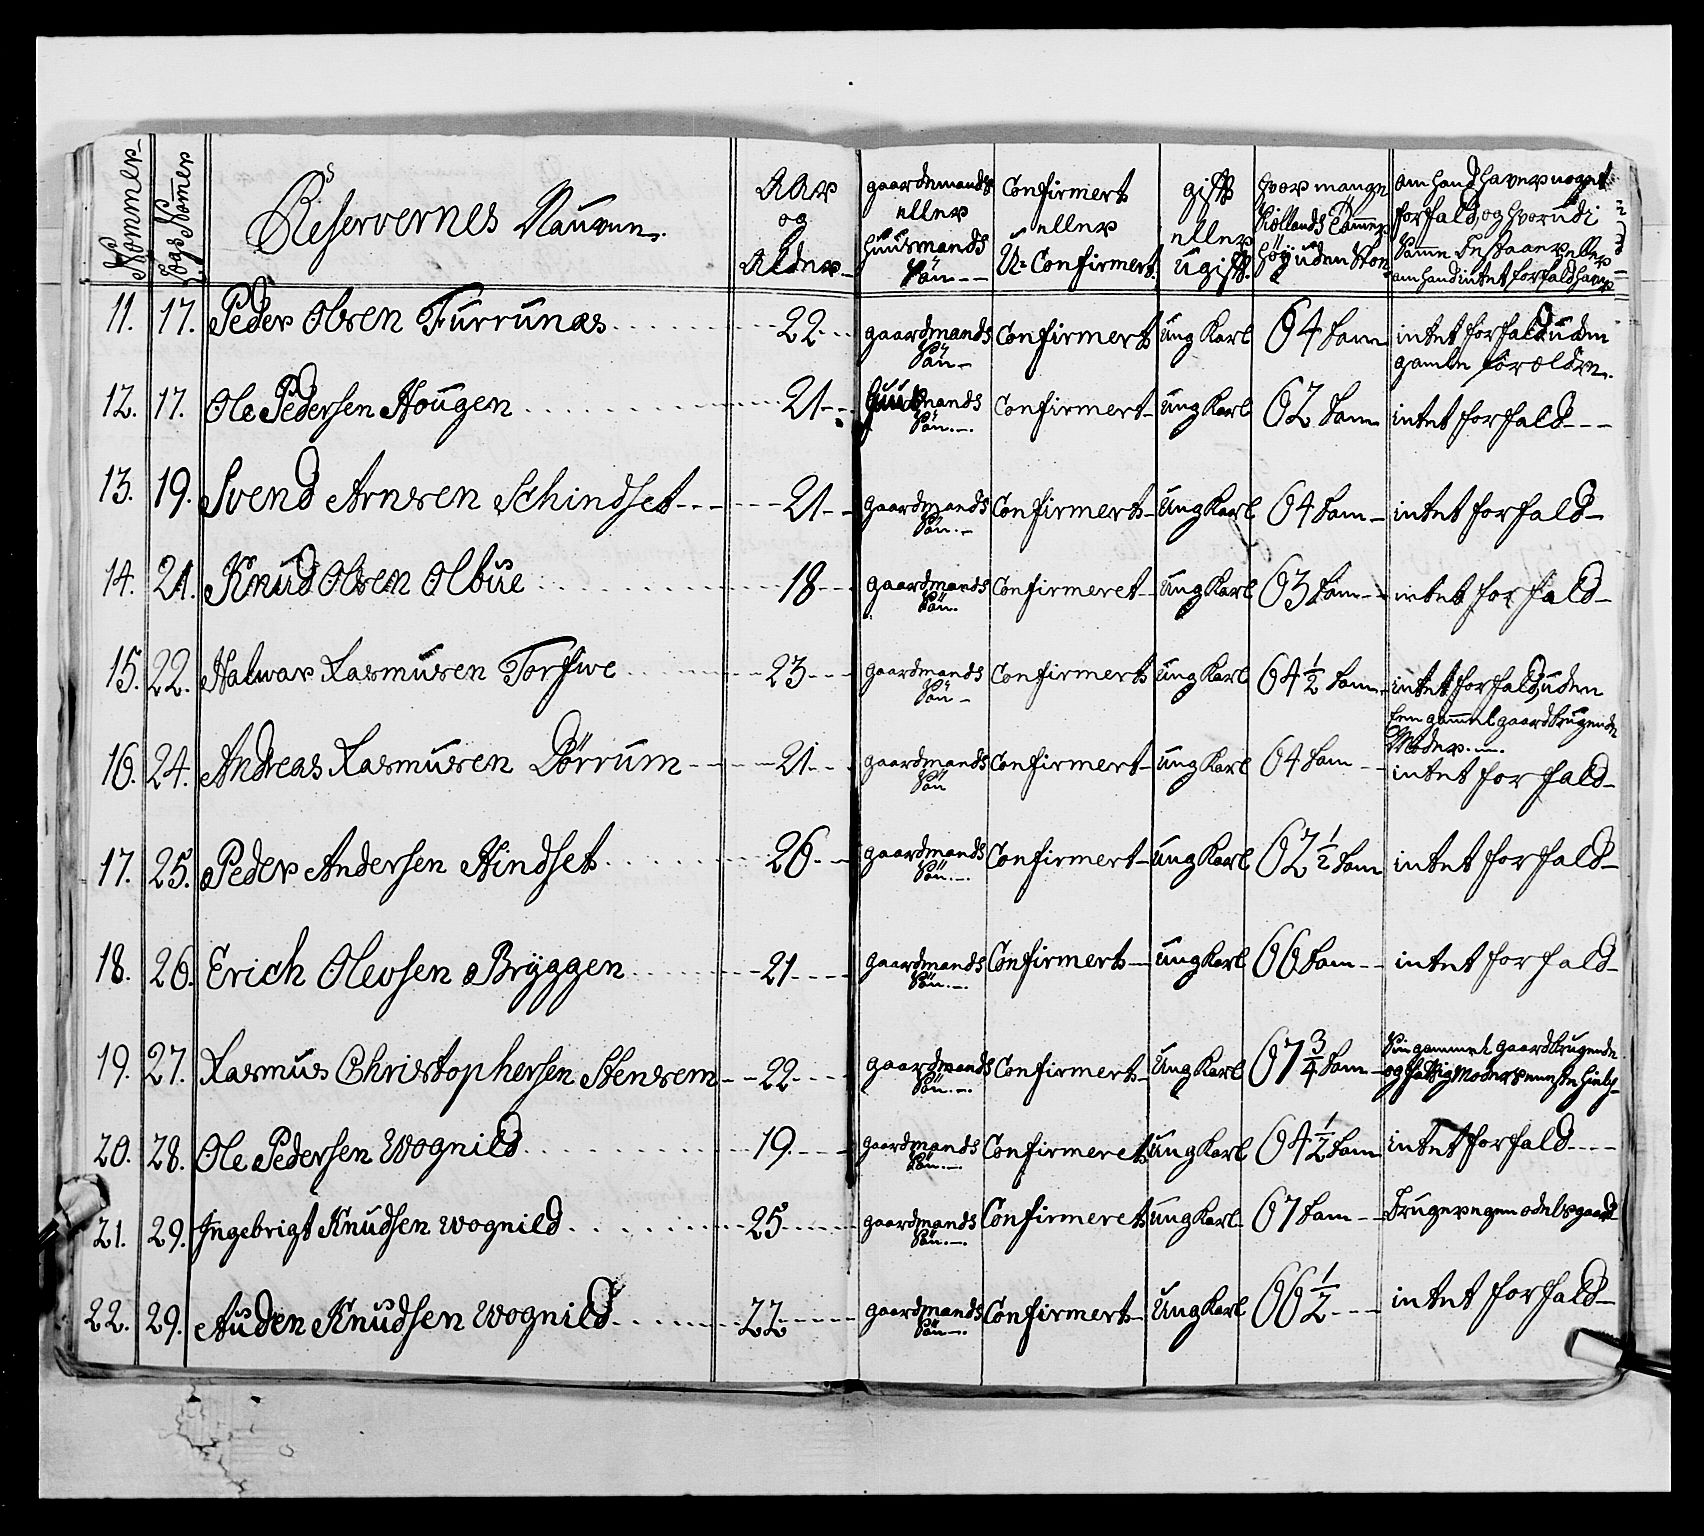 Nommer
Lægs Nomer
Reservernes Naufne.
AAr
og
Alder
gaardemands
eller
huusmands
Sön
Confirmert
eller
U=Confirmert
gift
eller
ugift
hvor mange
Siöllands Tommer
Höy uden Skoe
om hand haver noget
forfald, og hvorudi
Samme bestaaer, eller
om hand intet forfald haver
11. 17. Peder Olsen Furrunæs 22 gaardmands Confirmert ung Karl 64 Tom intet forfald uden
Sön gamle forældre.
12. 17. Ole Pedersen Hougen 21 huusmands Confirmert ung Karl 62 Tom intet forfald
Sön
13. 19. Svend Arnesen Schindset 21 gaardmands Confirmert ung Karl 64 Tom intet forfald
Sön
14. 21. Knud Olsen Olbue 18 gaardmands Confirmeret ung Karl 63 Tom intet forfald
Sön
15. 22. Halwar Rasmusen Torfwe 23 gaardmands Confirmert ung Karl 64 1/2 Tom intet forfald uden
Sön Een gammel gaardbrugende
Moder.
16. 24. Andreas Rasmusen Dörrum 21 gaardmands Confirmert ung Karl 64 Tom intet forfald
Sön
17. 25. Peder Andersen Hindset 26 gaardmands Confirmert ung Karl 62 1/2 Tom intet forfald
Sön
18. 26. Erich Olevsen Bryggen 21 gaardmands Confirmert ung Karl 66 Tom intet forfald
Sön
19. 27. Rasmus Christophersen Stensem 22 gaardmands Confirmert ung Karl 67 3/4 Tom Sin gammel gaardbrugende
Sön og fattig Moders eneste hielp
20. 28. Ole Pedersen Wognild 19 gaardmands Confirmeret ung Karl 64 1/2 Tom intet forfald
Sön
21. 29. Ingebrigt Knudsen wognild 25 gaardmands Confirmeret ung Karl 67 Tom Bruger egen odels gaard
Sön
22. 29. Auden Knudsen Wognild 22 gaardmands Confirmert ung Karl 66 1/2 intet forfald
Sön